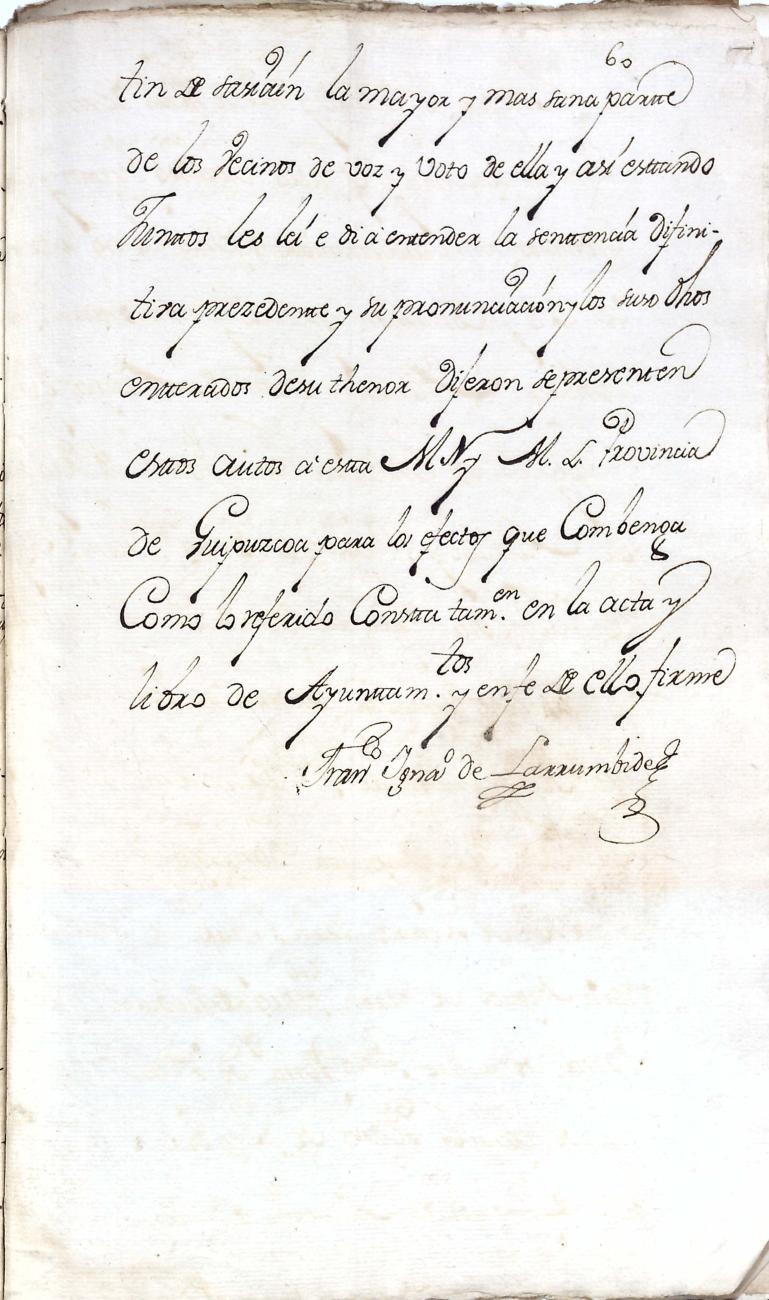 60
tin de sasiain la mayor y mas sana partte
de los Vecinos de voz y Voto de ella y asi esttando
Junttos les leí e di a entender la senttencia difini-
tiva prezedentte y su pronunciación y los suso dhos
entterados desu thenor dijeron se presentten
esttos autos a estta M N y M. L. Provincia
de Guipuzcoa para los efectos que Combenga
Como lo referido Constta tam.en en la acta y
libro de Ayunttam.tos y en fe de ello firme
Fran.co Igna.o de Larrumbide